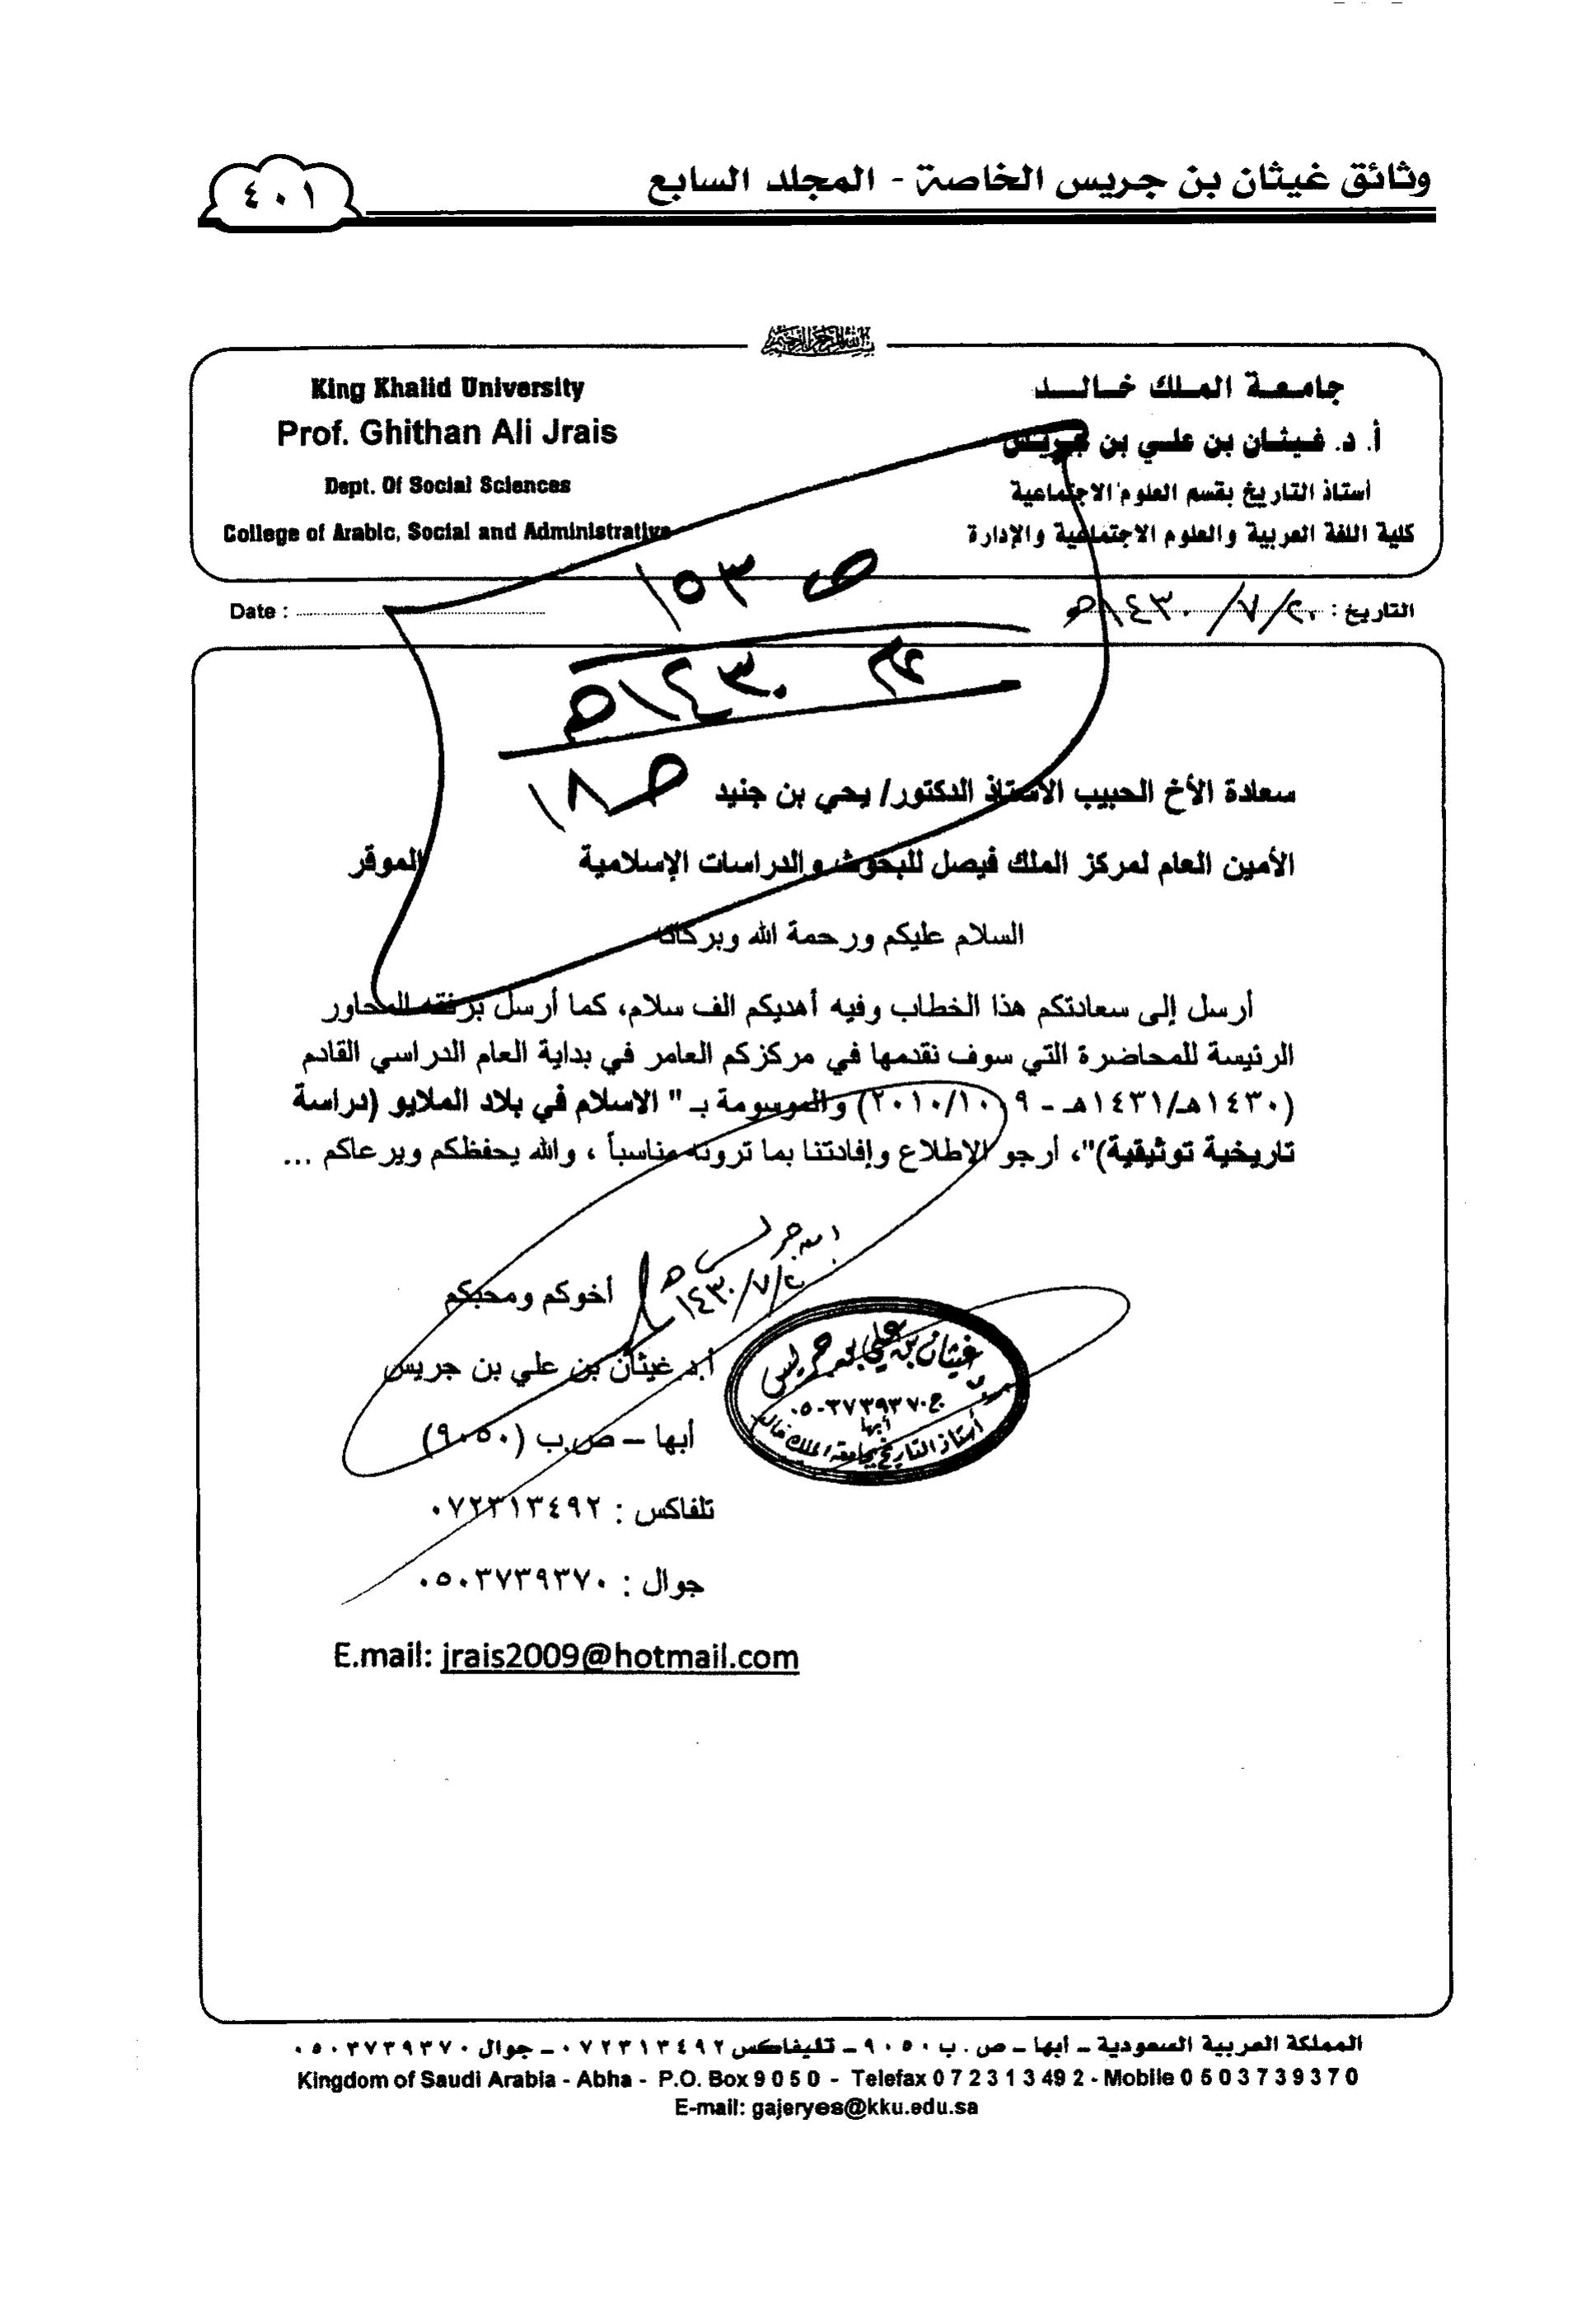 وثائق غيثان بن جريس الخاصة - المجلد السابع
٤٠١
بسم الله الرحمن الرحيم
جامعة الملك خالد
أ. د. غيثان بن علي بن جريس
أستاذ التاريخ بقسم العلوم الاجتماعية
كلية اللغة العربية والعلوم الاجتماعية والإدارة
King Khalid University
Prof. Ghithan Ali Jrais
Dept. Of Social Sciences
College of Arabic, Social and Administrative
التاريخ : ٢٠/٧/١٤٣٠هـ
Date :
ص ١٥٣
عام ١٤٣٠هـ
ص ١٨
سعادة الأخ الحبيب الأستاذ الدكتور/ يحي بن جنيد
الأمين العام لمركز الملك فيصل للبحوث والدراسات الإسلامية الموقر
السلام عليكم ورحمة الله وبركاته
أرسل إلى سعادتكم هذا الخطاب وفيه أهديكم الف سلام، كما أرسل برفقته المحاور
الرئيسة للمحاضرة التي سوف نقدمها في مركزكم العامر في بداية العام الدراسي القادم
(١٤٣٠هـ/١٤٣١هـ - ٢٠١٠/١٠٠٩) والموسومة بـ " الاسلام في بلاد الملايو (دراسة
تاريخية توثيقية)"، أرجو الاطلاع وإفادتنا بما ترونه مناسباً ، والله يحفظكم ويرعاكم ...
ابن جريس
٢٠/٧/١٤٣٠هـ
أخوكم ومحبكم
أ.د غيثان بن علي بن جريس
أبها – ص.ب (٩٠٥٠)
تلفاكس : ٠٧٢٣١٣٤٩٢
جوال : ٠٥٠٣٧٣٩٣٧٠
E.mail: jrais2009@hotmail.com
غيثان بن علي بن جريس
ج ٠٥٠٣٧٣٩٣٧٠
أبها
أستاذ التاريخ بجامعة الملك خالد
المملكة العربية السعودية – أبها – ص . ب ٩٠٥٠ – تليفاكس ٠٧٢٣١٣٤٩٢ – جوال ٠٥٠٣٧٣٩٣٧٠
Kingdom of Saudi Arabia - Abha - P.O. Box 9 0 5 0 - Telefax 0 7 2 3 1 3 49 2 - Mobile 0 5 0 3 7 3 9 3 7 0
E-mail: gajeryes@kku.edu.sa